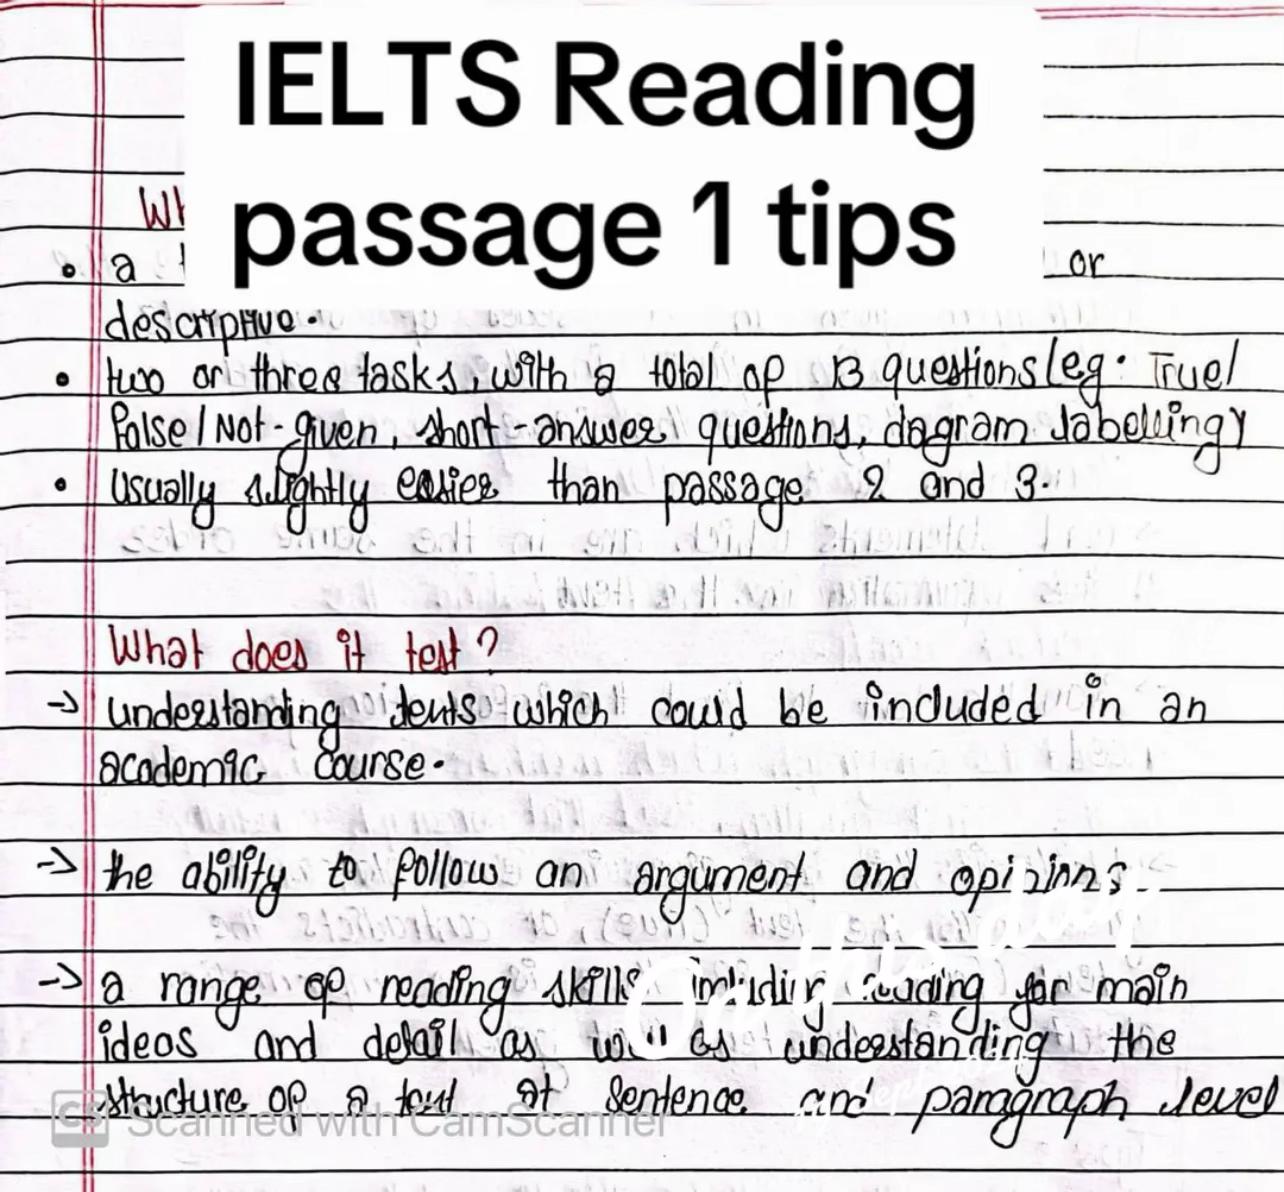 IELTS Reading
passage 1 tips
Wh
• a or
descriptive.
• two or three tasks, with a total of 13 questions (eg: True/
False/Not-given, short-answer questions, dagram labelling)
• usually slightly easier than passage 2 and 3.
What does it test?
-> understanding texts which could be included in an
academic course.
-> the ability to follow an argument and opinions
-> a range of reading skills including reading for main
ideas and detail as well as understanding the
structure of a text at sentence and paragraph level
On this day
CS Scanned with CamScanner